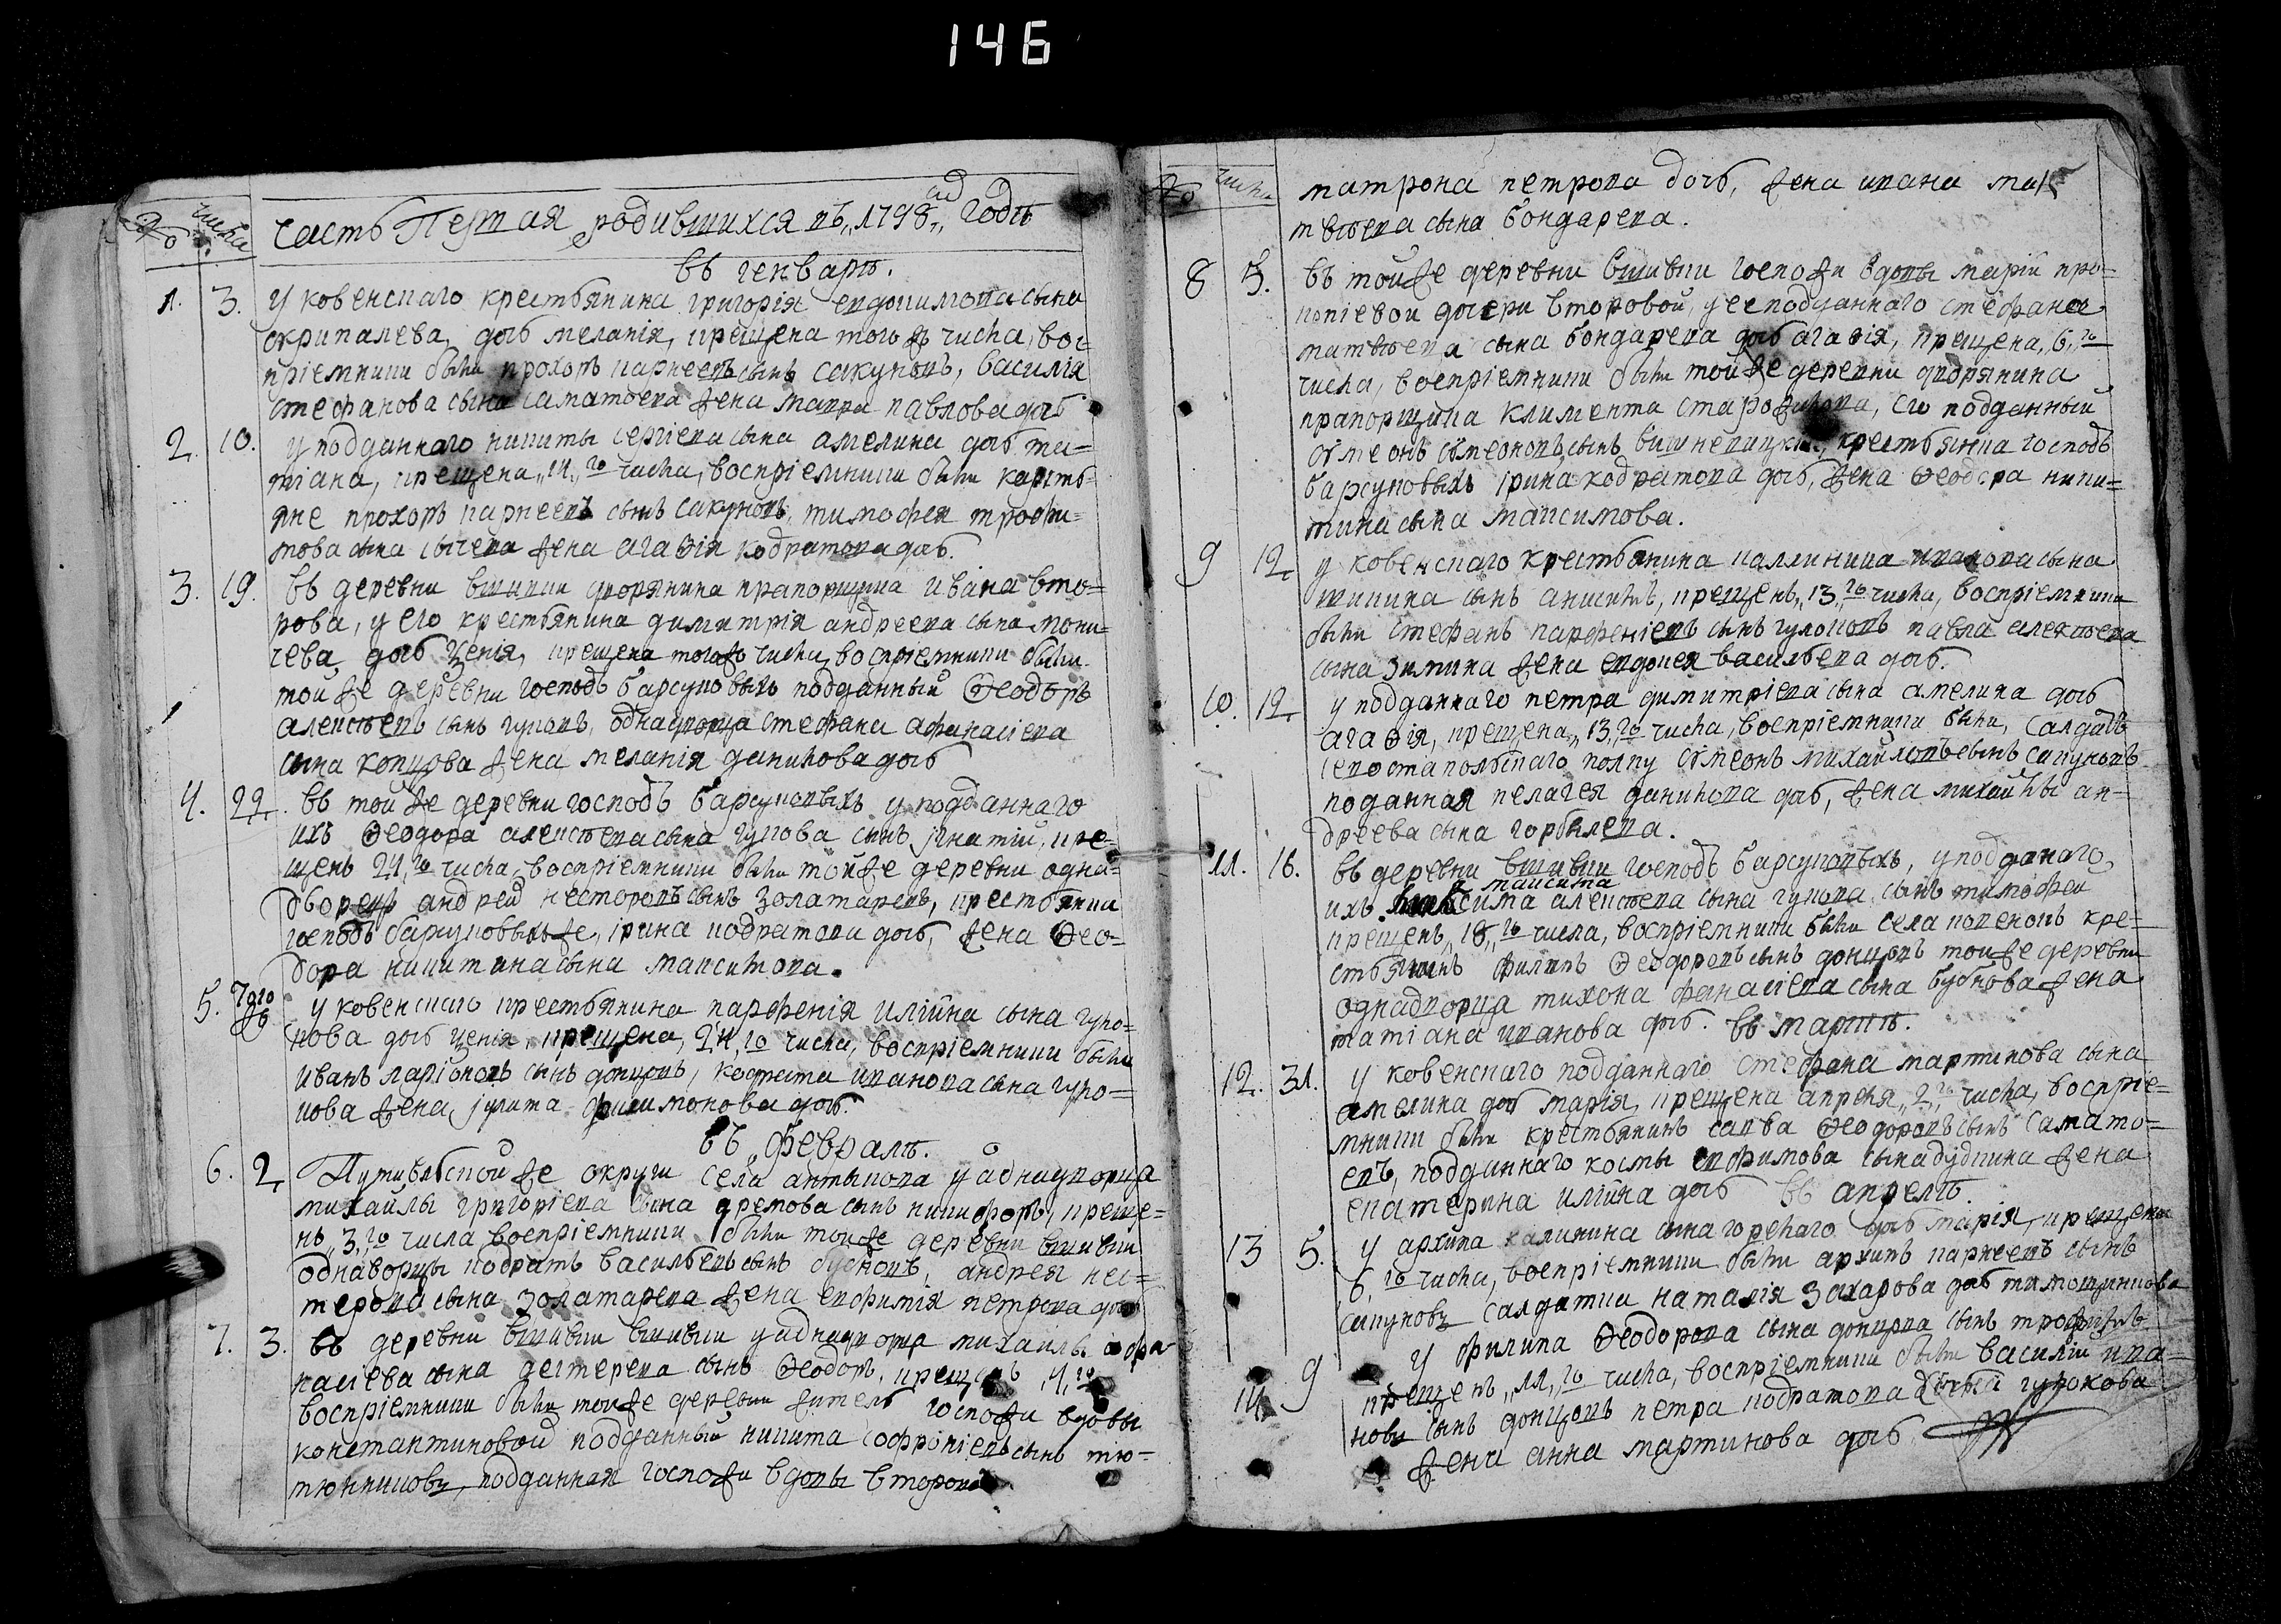 146
№ числа
Часть Первая родившихся въ „1798„ мъ годѣ
въ генварѣ.
1. 3. У ковенскаго крестьянина григорія евдокимова сына
скрипалева, дочь меланія, крещена тогожъ числа, вос-
пріемники были прохоръ карнеевъ сынъ сакуновъ, василія
стефанова сына саматоева жена мавра павлова дочь
2. 10. у подданнаго никиты сергіева сына амелина дочь та-
тіана, крещена „11„ го числа, воспріемники были кресть-
яне прохоръ карнеевъ сынъ сакуновъ, тимофея трофи-
мова сына сычева жена агаѳія кодратова дочь.
3. 19. въ деревни вшивки дворянина прапорщика ивана вто-
рова, у его крестьянина димитрія андреева сына
чева дочь ѯенія, крещена тогожъ числа, воспріемники были
той же деревни господъ барсуковыхъ подданный Ѳеодоръ
алексѣевъ сынъ гуковъ, однадворца стефана афанасіева
сына копцова жена меланія данилова дочь
4. 22. въ той же деревни господъ барсуковыхъ у подданнаго
ихъ Ѳеодора алексѣева сына гукова сынъ игнатій, кре-
щенъ 24 го числа, воспріемники были той же деревни одна-
дворецъ андрей несторовъ сынъ золатаревъ, крестьянка
господъ барсуковыхъ же, ірина кодратова дочь, жена Ѳео-
дора никитина сына максимова.
5. Того жъ у ковенскаго крестьянина парфенія иліина сына гуро-
нова дочь ѯенія, крещена, 24, го числа, воспріемники были
иванъ ларіоновъ сынъ донцовъ, иванова сына гуро-
нова жена, іулита филимонова дочь.
въ февралѣ.
6. 2 Путивльской же округи села антыкова у аднадворца
михайлы григоріева сына еремова сынъ никифоръ, креще-
нъ „3„ го числа воспріемники были той же деревни вшивки
однаворцы кодратъ васильевъ сынъ бубновъ, андрея нес-
терова сына золатарева жена евфимія петрова дочь
7. 3. въ деревни вшивки вшивки у аднадворца михаилы афа-
насіева сына дегтерева сынъ Ѳеодоръ, крещенъ „4„ го
воспріемники были той же деревни житель госпожи вдовы
константиновой подданный никита софроніевъ сынъ тю-
тюнниковъ, подданная госпожи вдовы второвой
№ числа
матрона петрова дочь, жена ивана мат-
твѣева сына бондарева.
8 5. въ той же деревни вшивки госпожи вдовы маріи про-
копіевой дочери второвой, у ее подданнаго стефана
матвѣева сына бондарева дочь агаѳія, крещена, „6„ го
числа, воспріемники были той же деревни дворянина
прапорщика климента старожилова, его подданный
сѵмеонъ сѵмеоновъ сынъ вишневицкій, крестьянка господъ
барсуковыхъ ірина кодратова дочь, жена Ѳеодора ники-
тина сына максимова.
9 12 у ковенскаго крестьянина каллиника сына
шикина сынъ крещенъ, „13„ го числа, воспріемники
были стефанъ парфеніевъ сынъ гуроновъ павла алексѣева
сына зимина жена евдокея васильева дочь.
10. 12 у подданнаго петра димитріева сына амелина дочь
агаѳія, крещена, „13„ го числа, воспріемники были, салдатъ
севостапольскаго полку сѵмеонъ михайловъ сынъ сакуновъ
поданная пелагея данилова дочь, жена михайлы ан-
дреева сына горбылева.
11. 16. въ деревни вшивки господъ барсуковыхъ, у подданаго
ихъ максима алексѣева сына гукова сынъ тимофей
крещенъ, „18„ го числа, воспріемники были села ковенокъ кре-
стьянинъ филипъ Ѳеодоровъ сынъ донцовъ той же деревни
однадворца тихона фанасіева сына бубнова жена
татіана иванова дочь. въ мартѣ.
12. 31. у ковенскаго подданнаго стефана мартинова сына
амелина дочь марія, крещена апреля „2„ го числа, воспріе-
мники были крестьянинъ савва Ѳеодоровъ сынъ самато-
евъ, подданнаго космы евфимова сына дудкина жена
екатерина иліина дочь въ апрелѣ.
13 5. у архипа калинина сына горелаго дочь марія, крещена
6, го числа, воспріемники были архипъ карнеевъ сынъ
сакуновъ салдатка наталія захарова дочь
14 9 у филипа Ѳеодорова сына донцова сынъ трофимъ
крещенъ, „11„ го числа, воспріемники были василій ива-
новъ сынъ донцовъ петра кодратова сына гуронова
жена анна мартинова дочь